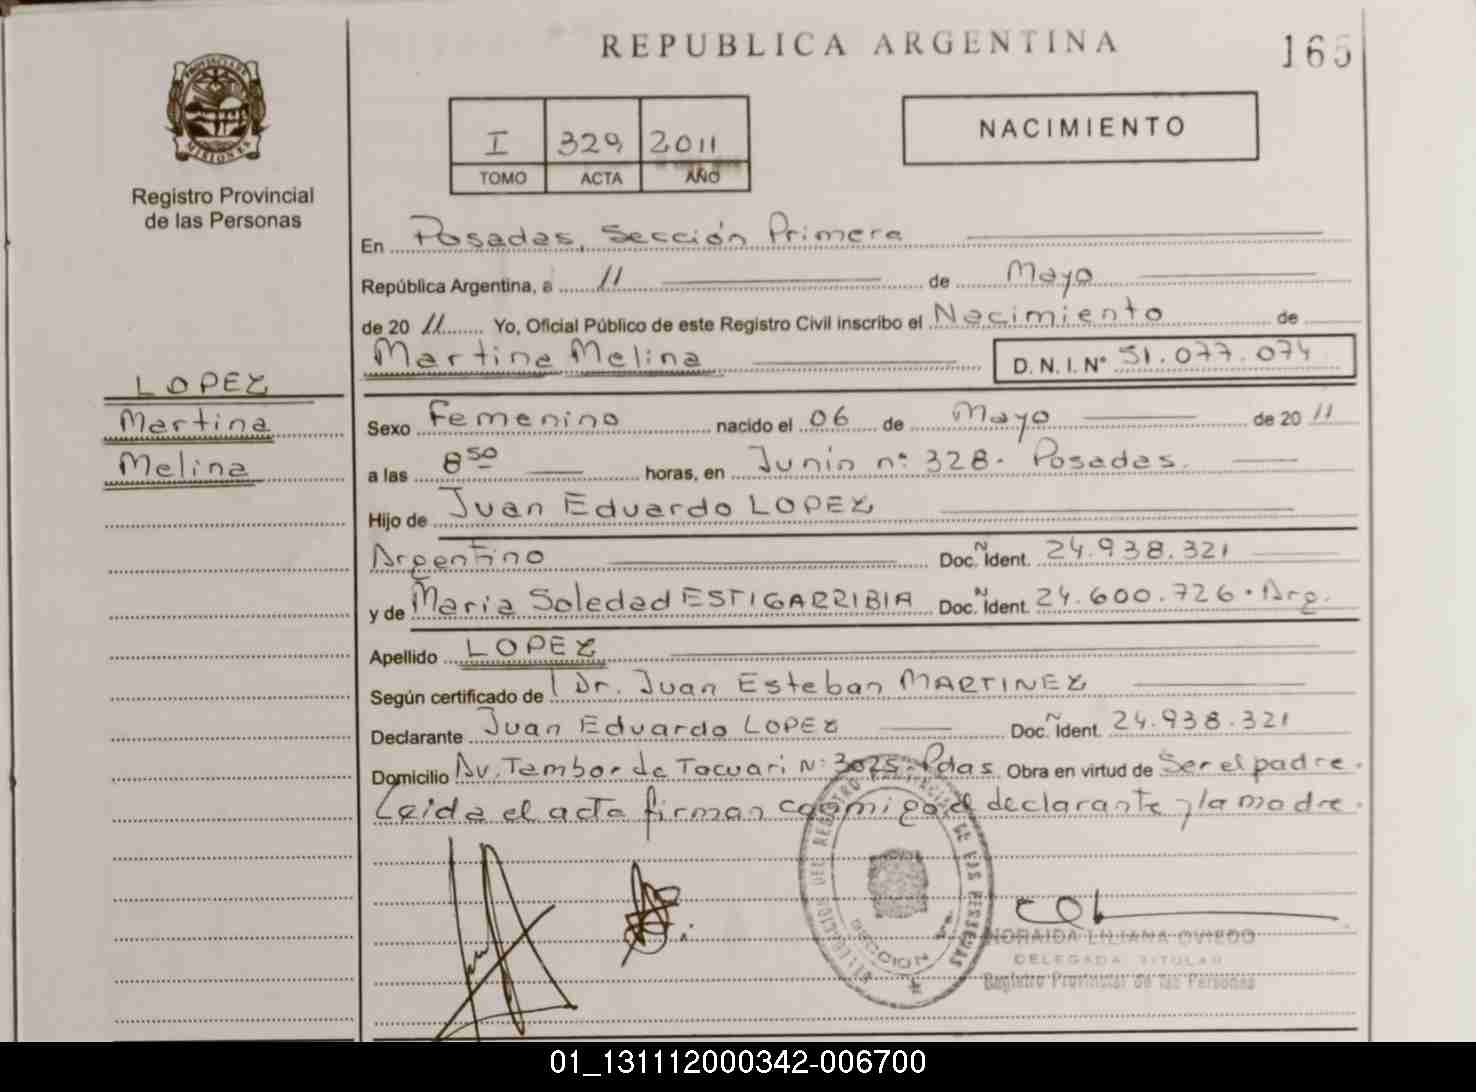 REPUBLICA ARGENTINA
165
PROVINCIA DE
MISIONES
Registro Provincial
de las Personas
I 329 2011
TOMO ACTA AÑO
NACIMIENTO
En Posadas, Sección Primera
República Argentina, a 11 de Mayo
de 2011 Yo, Oficial Público de este Registro Civil inscribo el Nacimiento de
Martina Melina D. N. I. Nº 51.077.074
LOPEZ
Martina
Melina
Sexo Femenino nacido el 06 de Mayo de 2011
a las 8 50 horas, en Junin nº 328. Posadas.
Hijo de Juan Eduardo LOPEZ
Argentino Doc. Ident. Nº 24.938.321
y de Maria Soledad ESTIGARRIBIA Doc. Ident. Nº 24.600.726. Arg.
Apellido LOPEZ
Según certificado de Dr. Juan Esteban MARTINEZ
Declarante Juan Eduardo LOPEZ Doc. Ident. Nº 24.938.321
Domicilio Av. Tambor de Tacuari Nº 3025. Pdas. Obra en virtud de Ser el padre.
Leida el acta firman conmigo el declarante y la madre.
NORAIDA LILIANA OVIEDO
DELEGADA TITULAR
Registro Provincial de las Personas
01_131112000342-006700